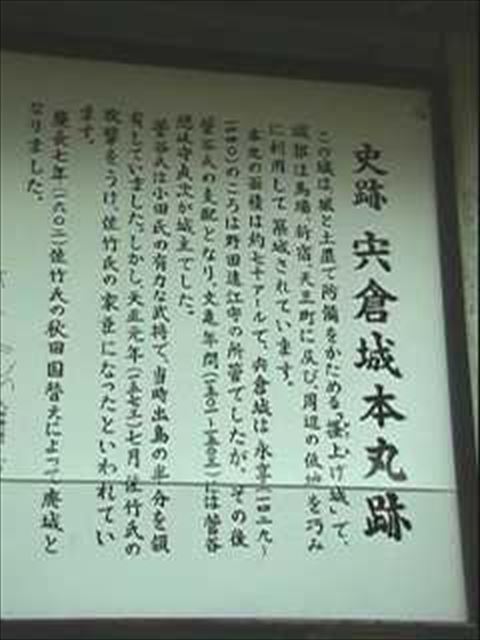 史跡 宍倉城本丸跡
この城は、堀と土塁で防備をかためる「掻上げ城」で、
城郭は馬場、新宿、天王町に及び、周辺の低地を巧み
に利用して築城されています。
本丸の面積は約七十アールで、宍倉城は永享(一四二九〜
一四四〇)のころは野田遠江守の所管でしたが、その後
菅谷氏の支配となり、文亀年間(一五〇一〜一五〇三)には菅谷
隠岐守貞次が城主でした。
菅谷氏は小田氏の有力な武将で、当時出島の半分を領
有していました。しかし、天正元年(一五七三)七月、佐竹氏の
攻撃をうけ、佐竹氏の家臣になったといわれてい
ます。
慶長七年(一六〇二)佐竹氏の秋田国替えによって廃城と
なりました。